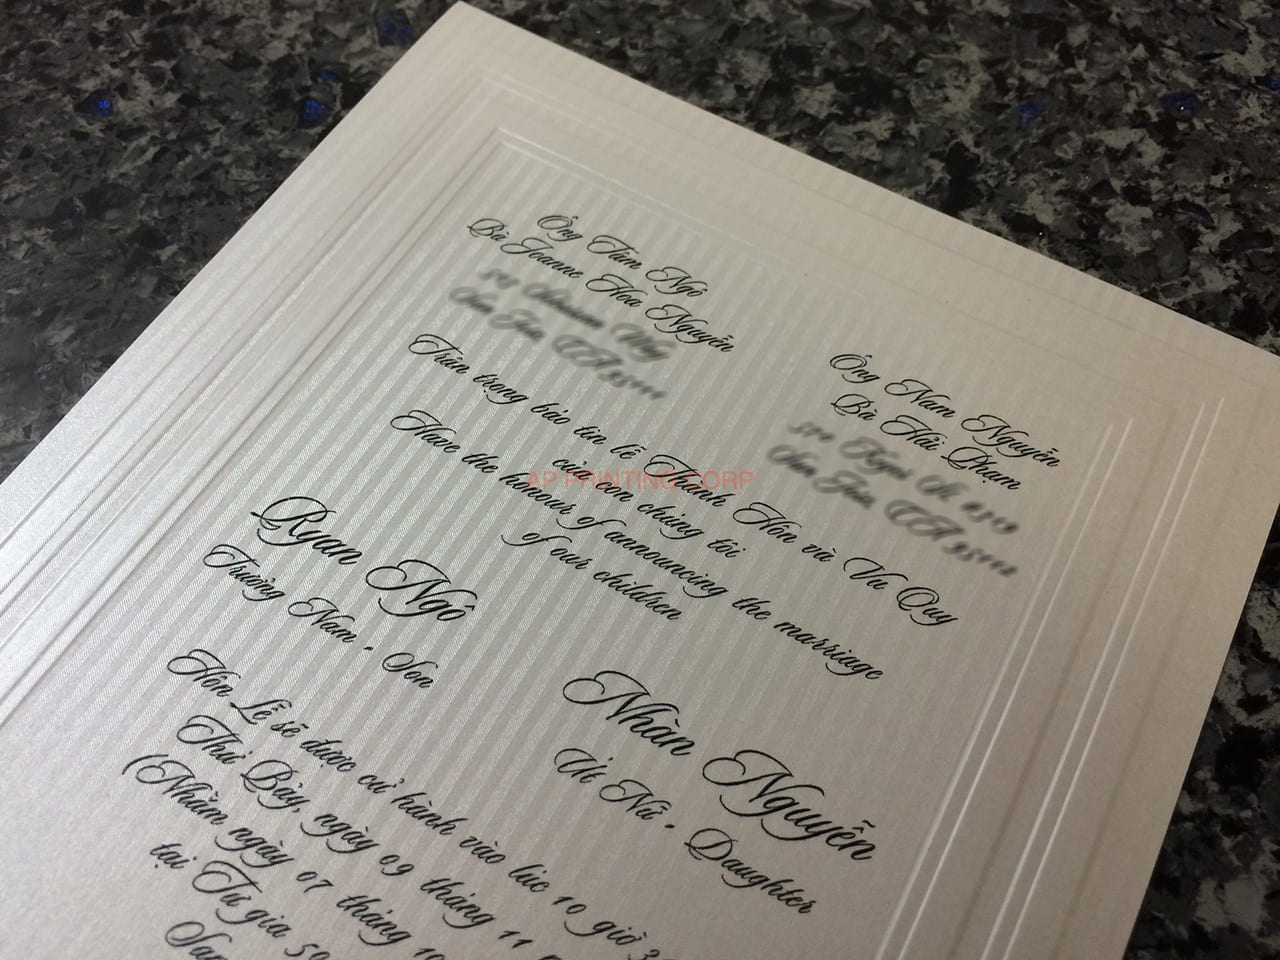 Ông Tâm Ngô
Bà Joanne Hoa Nguyễn
Ông Nam Nguyễn
Bà Hải Phạm
Trân trọng báo tin lễ Thành Hôn và Vu Quy
của con chúng tôi
Have the honour of announcing the marriage
of our children
AP PRINTING CORP
Ryan Ngô
Trưởng Nam - Son
Nhàn Nguyễn
Út Nữ - Daughter
Hôn Lễ sẽ được cử hành vào lúc 10 giờ
Thứ Bảy, ngày 09 tháng 11
(Nhằm ngày 07 tháng 10
tại Tư gia